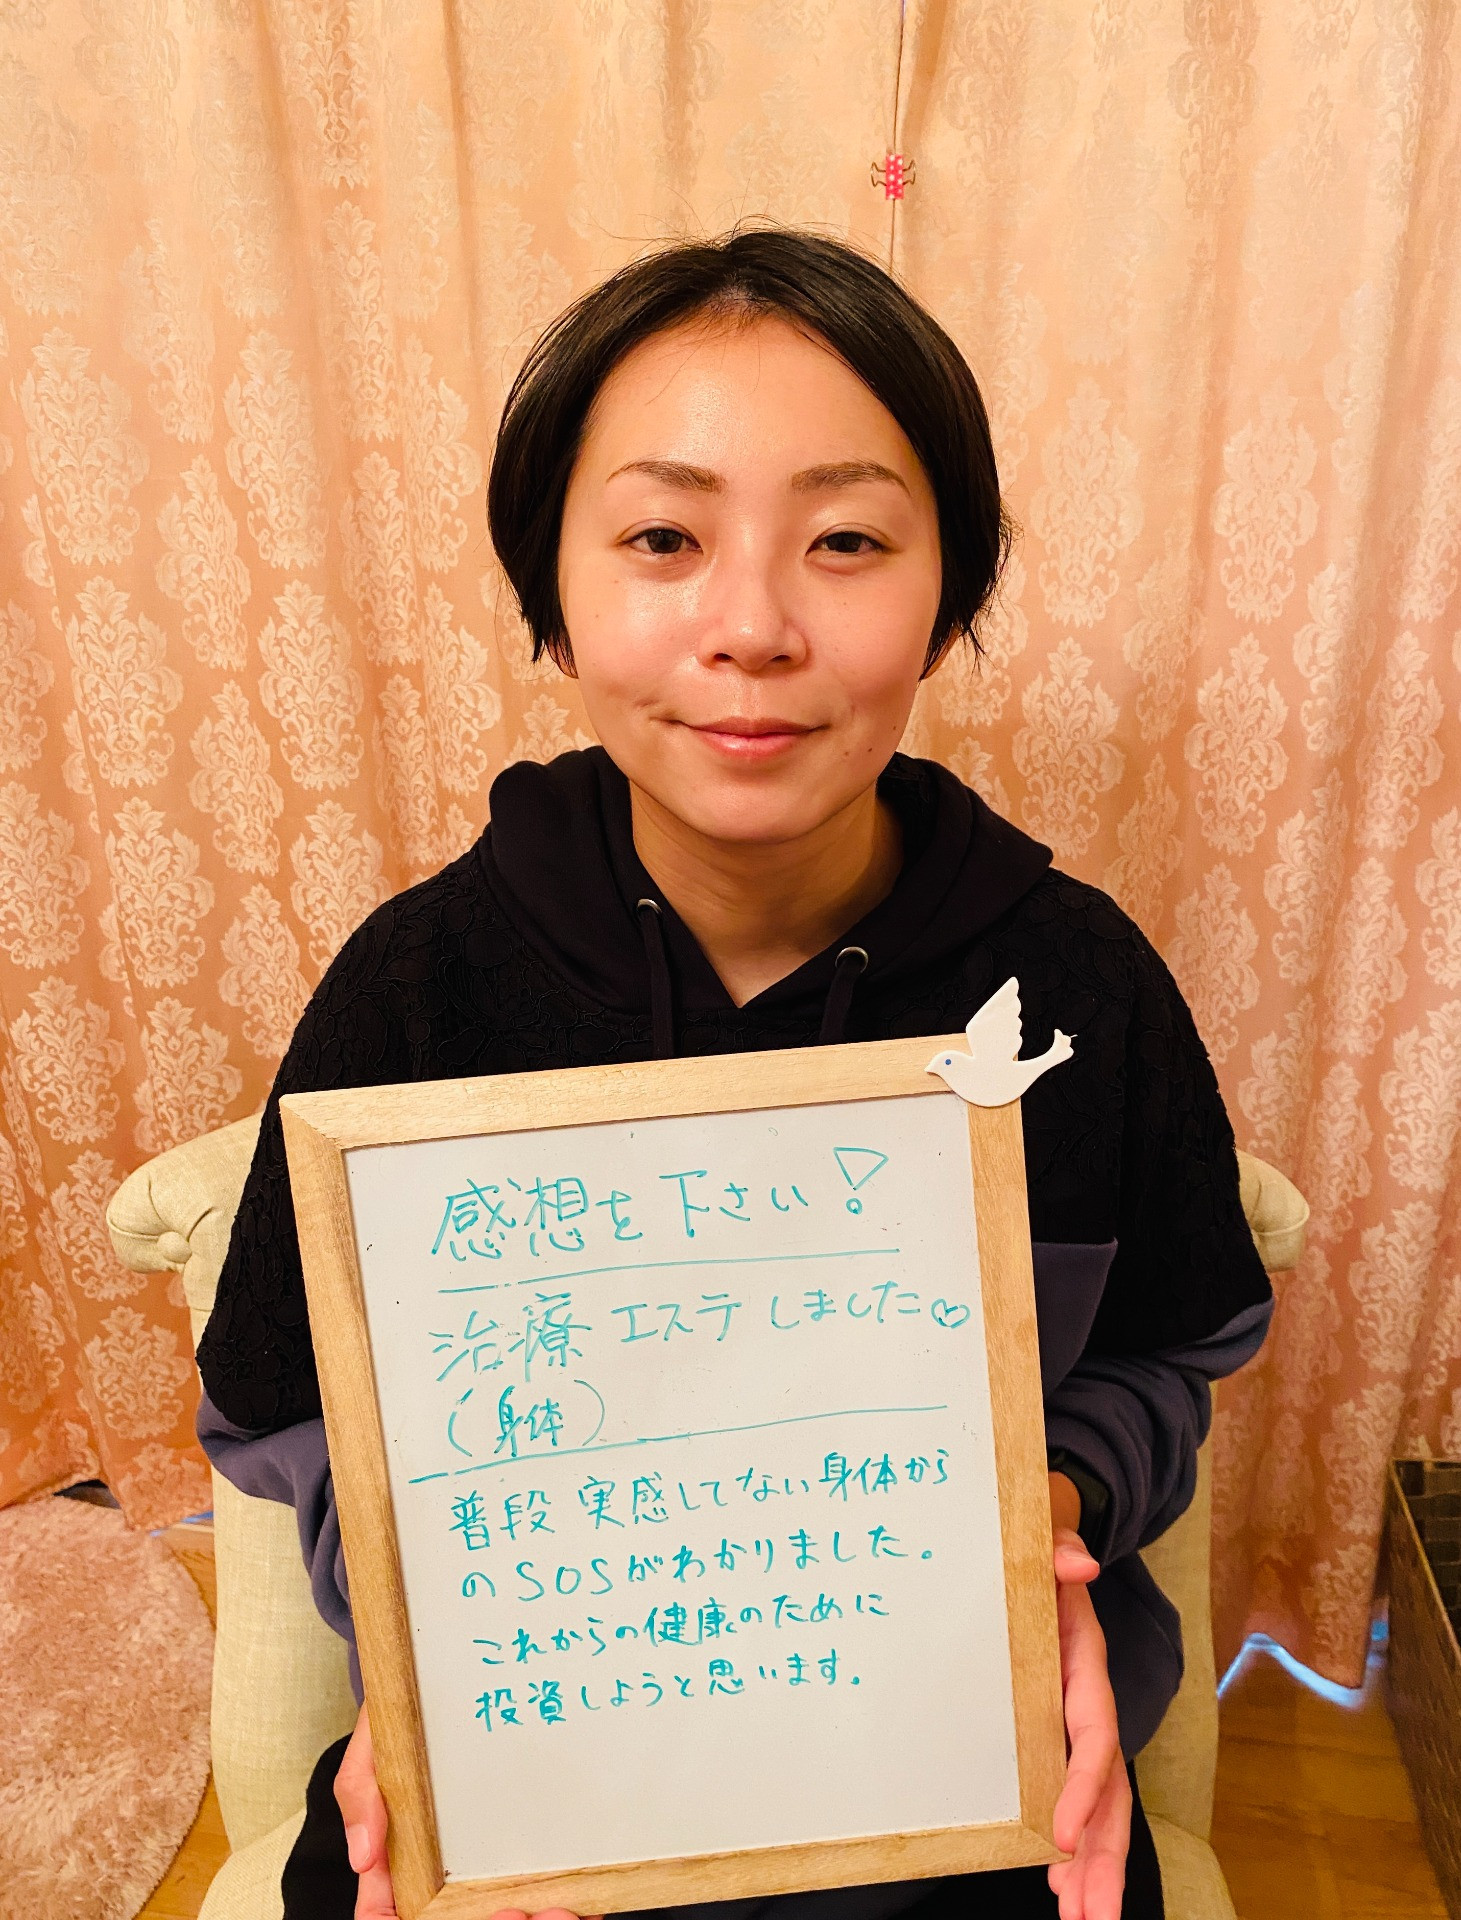 感想を下さい!
治療エステしました♡
(身体)
普段実感してない身体から
のSOSがわかりました。
これからの健康のために
投資しようと思います。